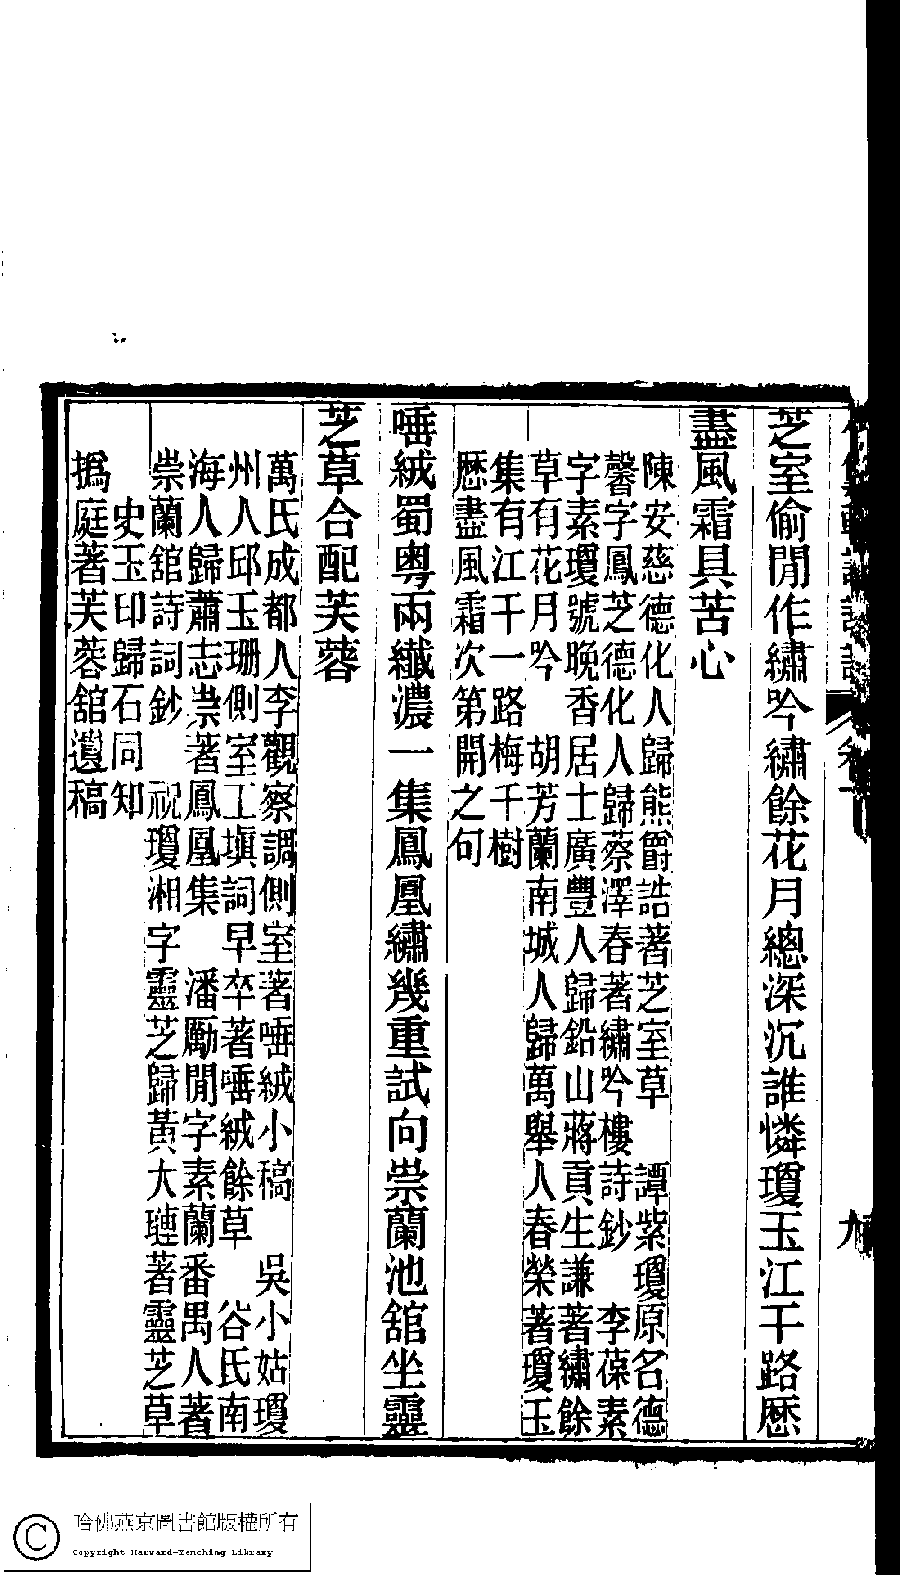 芝室偷閒作繡吟繡餘花月總深沉誰憐瓊玉江干路歴
盡風霜具苦心
陳安慈德化人歸熊爵誥著芝室草　譚紫瓊原名德
馨字鳳芝德化人歸蔡澤春著繡吟樓詩鈔　李葆素
字素瓊號晚香居士廣豐人歸鉛山蔣貢生謙著繡餘
草有花月吟　胡芳蘭南城人歸萬舉人春榮著瓊玉
集有江干一路梅千樹
歴盡風霜次第開之句
唾絨蜀粤兩纖濃一集鳳凰繡幾重試向崇蘭池舘坐靈
芝草合配芙蓉
萬氏成都人李觀察調側室著唾絨小稿　吳小姑瓊
州人邱玉珊側室工塡詞早卒著唾絨餘草　谷氏南
海人歸蕭志崇著鳳凰集　潘勵閒字素蘭番禺人著
崇蘭舘詩詞鈔　祝瓊湘字靈芝歸黃大璉著靈芝草
史玉印歸石同知
撝庭著芙蓉舘遺稿
九
哈佛燕京圖書館版權所有
Copyright Harvard-Yenching Library